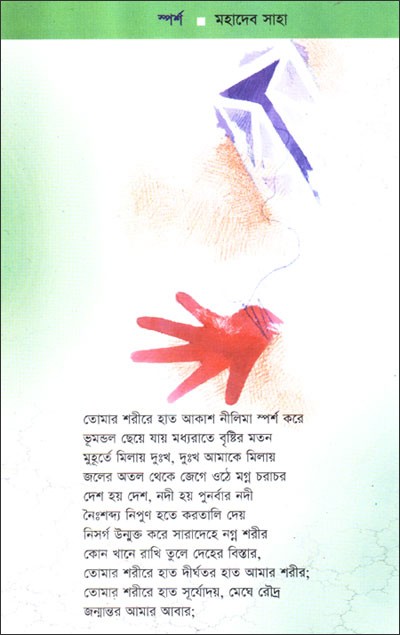 স্পর্শ ■ মহাদেব সাহা
তোমার শরীরে হাত আকাশ নীলিমা স্পর্শ করে
ভূমন্ডল ছেয়ে যায় মধ্যরাতে বৃষ্টির মতন
মুহূর্তে মিলায় দুঃখ, দুঃখ আমাকে মিলায়
জলের অতল থেকে জেগে ওঠে মগ্ন চরাচর
দেশ হয় দেশ, নদী হয় পুনর্বার নদী
নৈঃশব্দ্য নিপুণ হতে করতালি দেয়
নিসর্গ উন্মুক্ত করে সারাদেহে নগ্ন শরীর
কোন খানে রাখি তুলে দেহের বিস্তার,
তোমার শরীরে হাত দীর্ঘতর হাত আমার শরীর;
তোমার শরীরে হাত সূর্যোদয়, মেঘে রৌদ্র
জন্মান্তর আমার আবার;